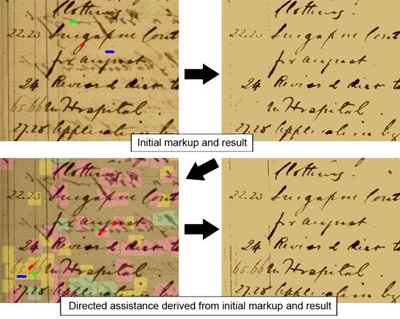 Clothing.
22.23 Singapore Cont
for August
24 to
65.66 in Hospital.
27.28 Application
Clothing.
22.23 Singapore Cont
for August
24 to
in Hospital.
27.28 Application by
Initial markup and result
Clothing.
22.23 Singapore Cont
for August
24 to
65.66 in Hospital.
27.28 Application
Clothing.
22.23 Singapore Cont
for August
24 to
65.66 in Hospital.
27.28 Application by
Directed assistance derived from initial markup and result